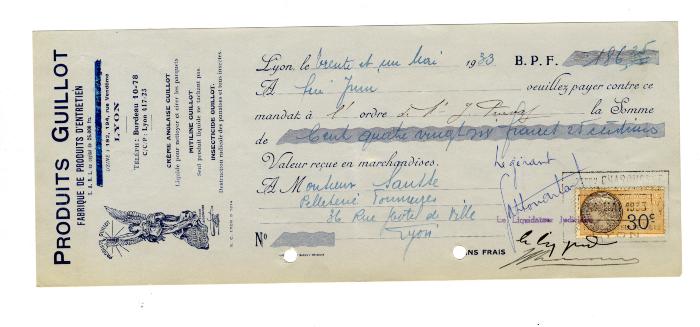 PRODUITS GUILLOT
FABRIQUE DE PRODUITS D'ENTRETIEN
S. A. R. L. au capital de 25.000 frs.
192, 194, rue Vendôme
LYON
TÉLÉPH: Burdeau 10-78
C.C.P: Lyon 417-23
CRÈME ANGLAISE GUILLOT
Liquide pour nettoyer et cirer les parquets
MITILINE GUILLOT
Seul produit liquide ne tachant pas
INSECTICIDE GUILLOT
Destruction radicale des punaises et tous insectes.
Lyon, le trente et un Mai 1933 B. P. F. 186,25
A fin Juin veuillez payer contre ce
mandat à l'ordre de la Somme
de Cent quatre vingt six francs 25 centimes
Valeur reçue en marchandises.
A Monsieur
Pelleterie Fourrures
36 Rue Hôtel de Ville
Lyon
No
SANS FRAIS
Le gérant
Le Liquidateur Judiciaire
30c